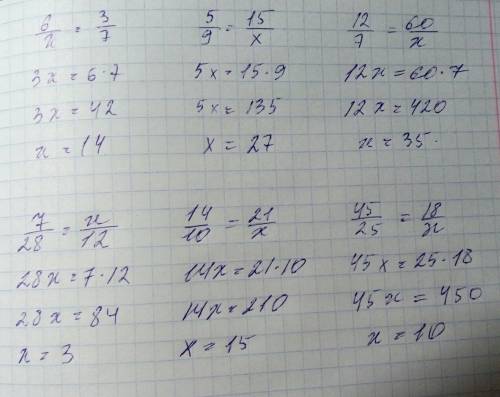 6/x = 3/7
3x = 6·7
3x = 42
x = 14
5/9 = 15/x
5x = 15·9
5x = 135
x = 27
12/7 = 60/x
12x = 60·7
12x = 420
x = 35.
7/28 = x/12
28x = 7·12
28x = 84
x = 3
14/10 = 21/x
14x = 21·10
14x = 210
x = 15
45/25 = 18/x
45x = 25·18
45x = 450
x = 10